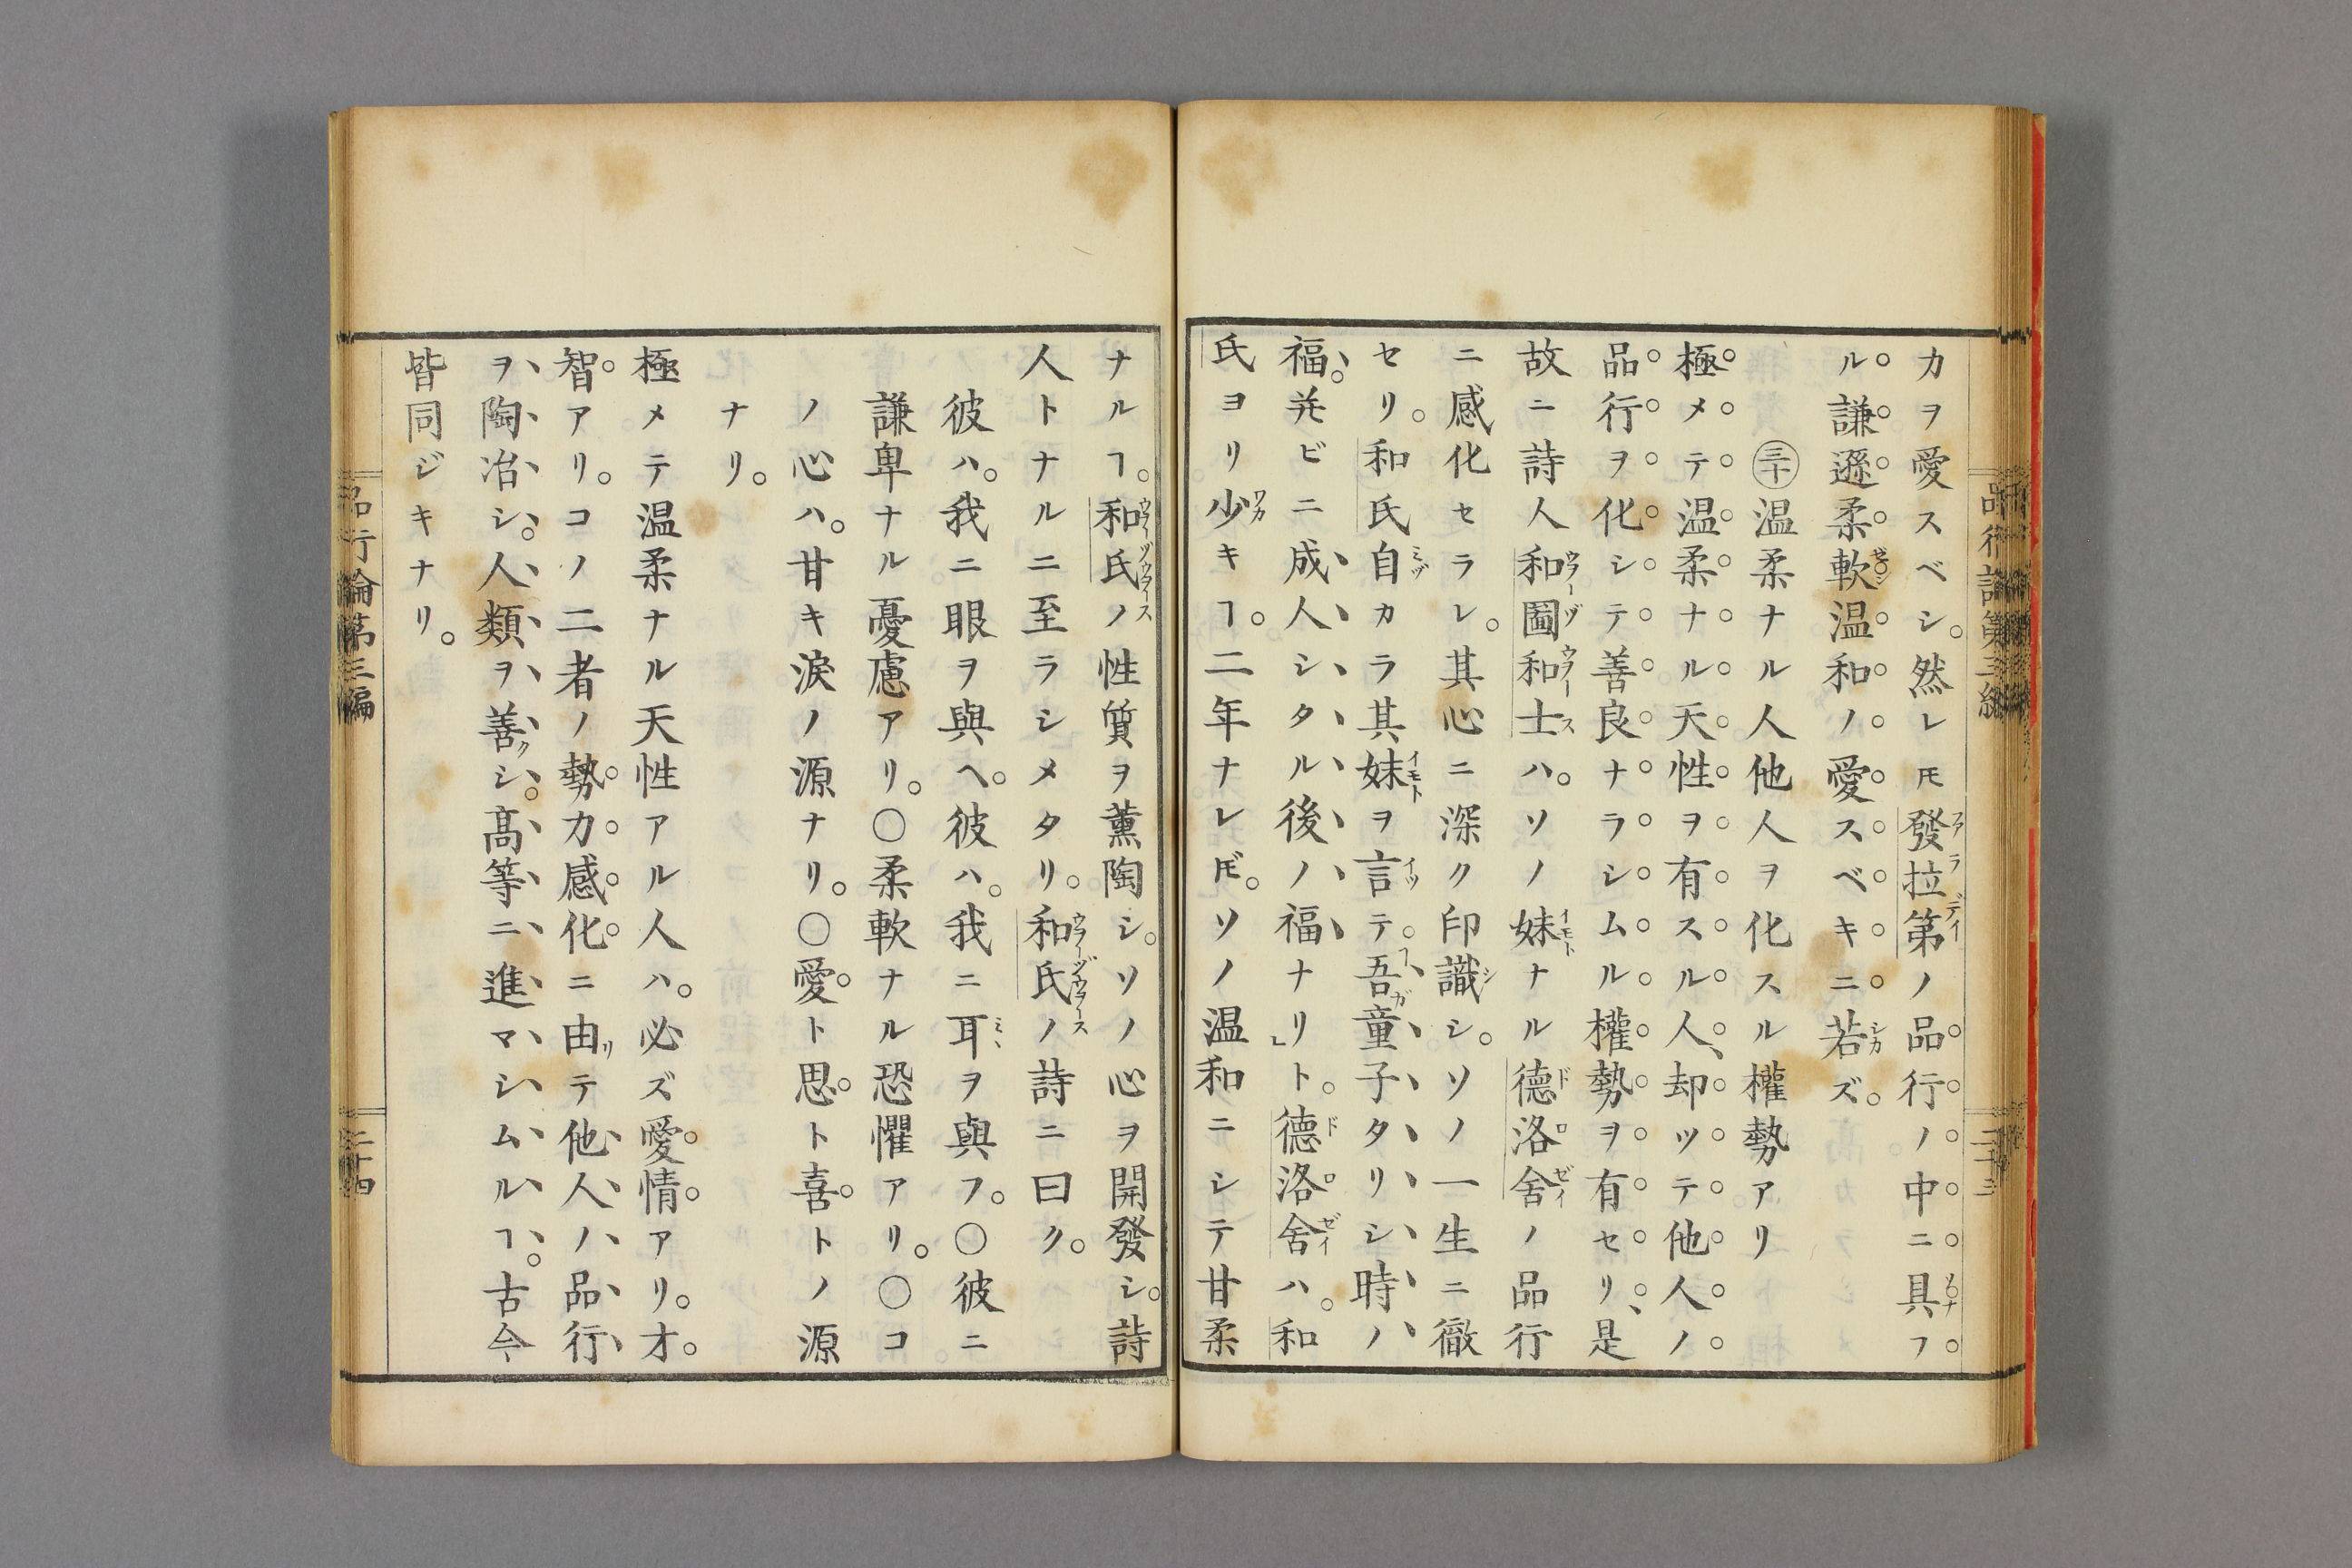 カヲ愛スベシ。然レ𪜈發拉第ノ品行ノ中ニ具フ
ル謙遜柔軟温和ノ愛スベキニ若ズ。
㊂十温柔ナル人他人ヲ化スル權勢アリ
極メテ温柔ナル天性ヲ有スル人、却ツテ他人ノ
品行ヲ化シテ善良ナラシムル權勢ヲ有セリ、是
故ニ詩人和圖和士ハ。ソノ妹ナル德洛舍ノ品行
ニ感化セラレ。其心ニ深ク印識シ。ソノ一生ニ徹
セリ。和氏自カラ其妹ヲ言テ。吾童子タリシ時ノ
福。并ビニ成人シタル後ノ福ナリ」ト。德洛舍ハ。和
氏ヨリ少キヿ。二年ナレ𪜈。ソノ温和ニシテ甘柔
品行論第三編
二十三
ナルヿ。和氏ノ性質ヲ薰陶シ。ソノ心ヲ開發シ。詩
人トナルニ至ラシメタリ。和氏ノ詩ニ曰ク。
彼ハ。我ニ眼ヲ與ヘ。彼ハ。我ニ耳ヲ與フ。〇彼ニ
謙卑ナル憂慮アリ。〇柔軟ナル恐懼アリ。〇コ
ノ心ハ。甘キ淚ノ源ナリ。〇愛ト思ト喜トノ源
ナリ。
極メテ温柔ナル天性アル人ハ。必ズ愛情アリ。才
智アリ。コノ二者ノ勢力感化ニ由テ他人ノ品行
ヲ陶冶シ。人類ヲ善シ。高等ニ進マシムルヿ。古今
皆同ジキナリ。
品行論第三編
二十四